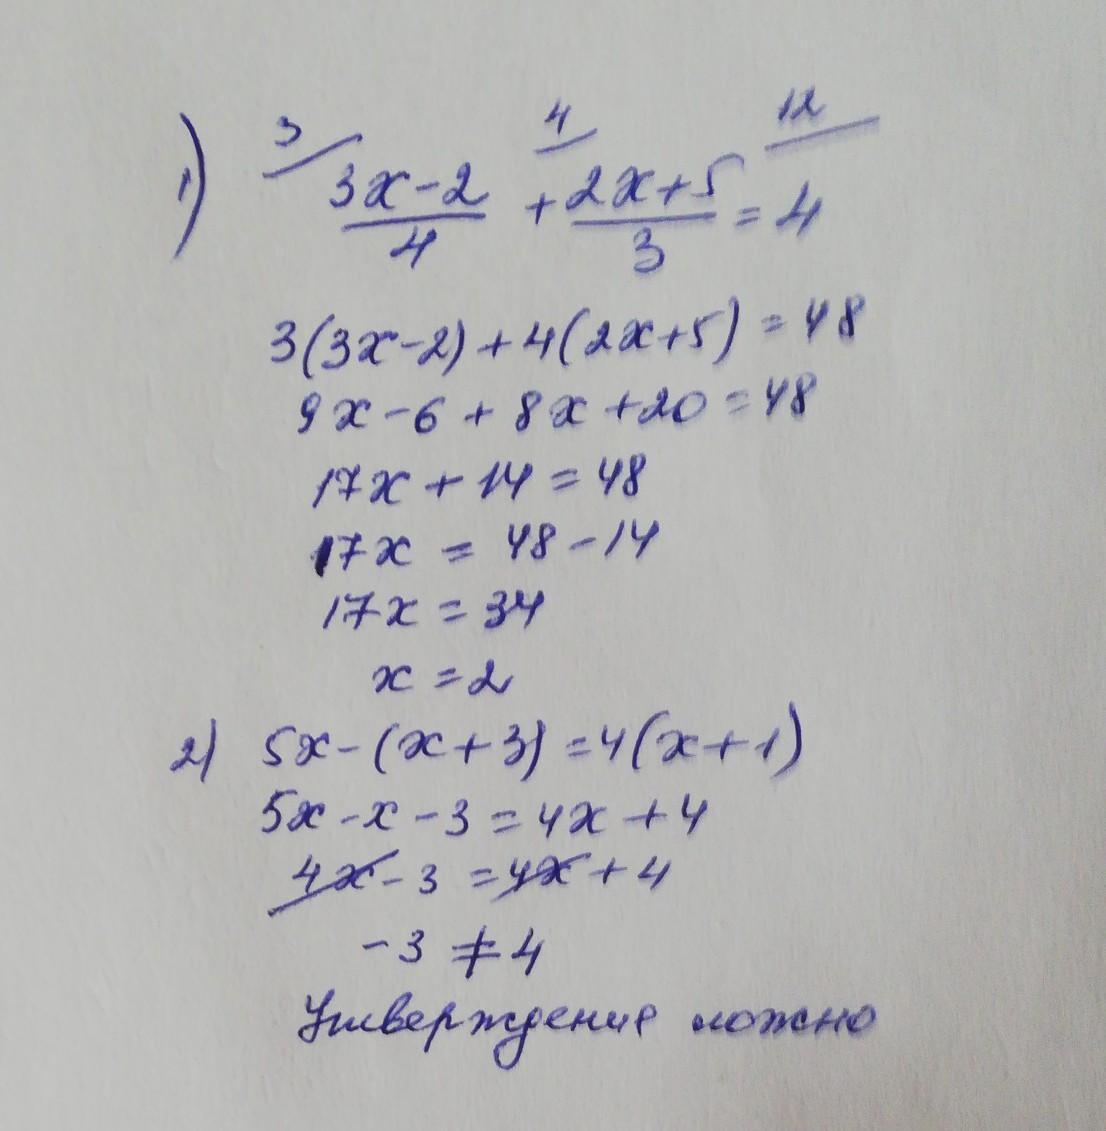 1) 3 4 12
3x-2/4 + 2x+5/3 = 4
3(3x-2)+4(2x+5) = 48
9x-6+8x+20=48
17x+14=48
17x = 48-14
17x=34
x=2
2) 5x-(x+3)=4(x+1)
5x-x-3=4x+4
4x-3=4x+4
-3 ≠ 4
Утверждение ложно